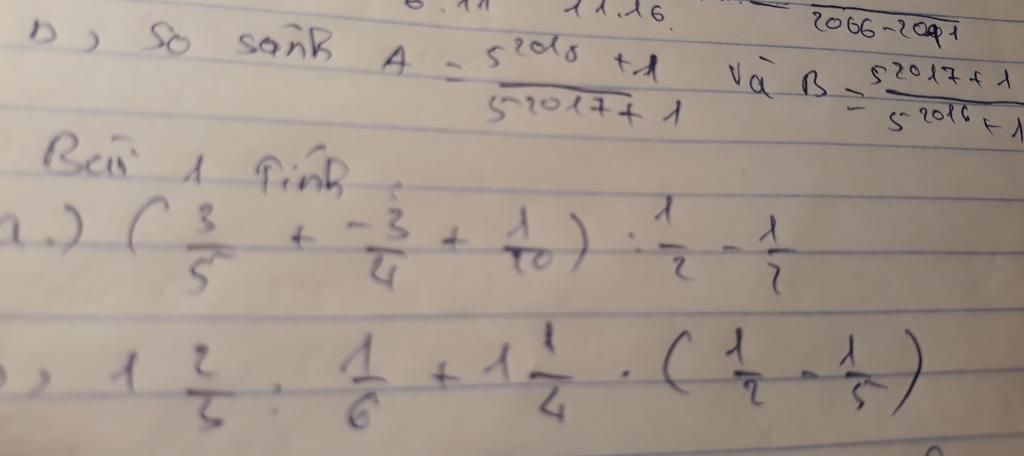 6.11 11.16. 2066-2091
D, So sánh A = \frac{5^{2018} + 1}{5^{2017} + 1} và B = \frac{5^{2017} + 1}{5^{2016} + 1}
Bài 1 Tính
a.) ( \frac{3}{5} + \frac{-3}{4} + \frac{1}{10} ) : \frac{1}{2} - \frac{1}{2}
, 1 \frac{2}{3} : \frac{1}{6} + 1 \frac{1}{4} . ( \frac{1}{2} - \frac{1}{5} )